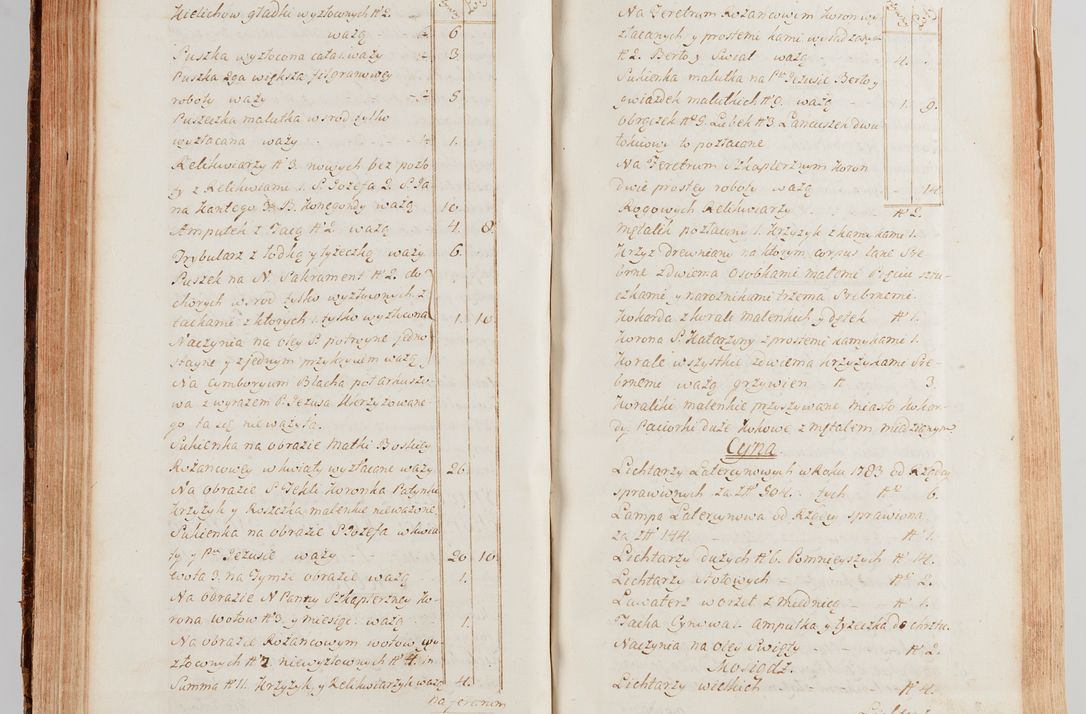 Kielichów gładki wyzłocnych N 2.
ważą - 6
Puszka wyzłocona cała waży - 3
Puszka 2ga większa filgranowey
roboty waży - 5
Puszeczka malutka wśrod tylko
wyzłacana waży - 1.
Relikwiarzy N 3. nowych bez pozło
ty z Relikwiami 1. S. Jozefa 2. S. Ja
na Kantego 3. B. Konegondy ważą 10.
Ampułek z Tacą N 2. ważą - 4. 8.
Trybularz z łodką y łyżeczką waży 6.
Puszek na N. Sakrament N 2. do
chorych wśrod tylko wyzłoconych z
tackami z ktorych 1. tylko wyzłocona 1. 10.
Naczynia na Oley S. potroyne jedno
stayne y z jednym przykryciem ważą
Na Cymboryum Blacha pułarkuszo
wa z wyrazem P. Jezusa Ukrzyżowane-
go ta się nie ważyła.
Sukienka na obrazie Matki Boskiey
Rożancowey w kwiaty wyzłacane waży 26.
Na Obrazie S. Tekli Koronka Patynka
Krzyżyk y Rożczka malenkie nieważone
Sukienka na obrazie S. Jozefa w kwia
ty y Pan Jezusie waży - 20 10.
Wota 3. na Tymże obrazie ważą - 1.
Na obrazie N Panny Szkaplerzney Ko-
rona wotow N 3. y miesiąc ważą 1.
Na obrazie Rożancowym wotow wy
złoconych N 7 niewyzłoconych N 4. in
Summa N 11. Krzyżyk y Relikwiarzyk ważą 4.
Na feretrum
Na Feretrum Rożancowym Koron wy
złacanych y prostemi kami wysadzanych
N 2. Berło y Swiat ważą 4.
Sukienka malutka na Pan Jezusie Berło y
gwiazdek malutkich N 6. ważą - 1. 9.
obrączek N 9. Lubek N 3. Łancuszek dwu
łokciowy to pozłacane
Na Feretrum Szkaplerznym Koron
dwie prostey roboty ważą - 14.
Rogowych Relikwiarzy N 2.
Metalik pozłacany 1. Krzyżyk z kamykami 1.
Krzyż drewniany na ktorym corpus lane Sre-
brne z dwiema Osobkami małemi Pięcią sztu-
czkami y narożnikami trzema Srebrnemi.
Kokarda z korali malenkich y dętek N 1.
Korona S. Katarzyny z prostemi kamykami 1.
Korale wszystkie z dwiema krzyżykami Sre-
brnemi ważą grzywien N 3.
Koraliki malenkie przyszywane miasto Kokar-
dy Paciorki duże Kokowe z metalem miedzianym
Cyna.
Lichtarzy Laterynowych w Roku 1783 od Rządcy
sprawionych za zł 304. tych N 6.
Lampa Laterynowa od Rządcy sprawiona
za zł 144. N 1.
Lichtarzy dużych N 6. Pomnieyszych N 14.
Lichtarzy stołowych - N 2.
Lawaterz w orzeł z miednicą - N 1.
Tacka Cynowa 1. ampułka y łyżeczka do chrztu.
Naczynia na Oley Swięty N 2.
Mosiądz.
Lichtarzy wielkich N 4.